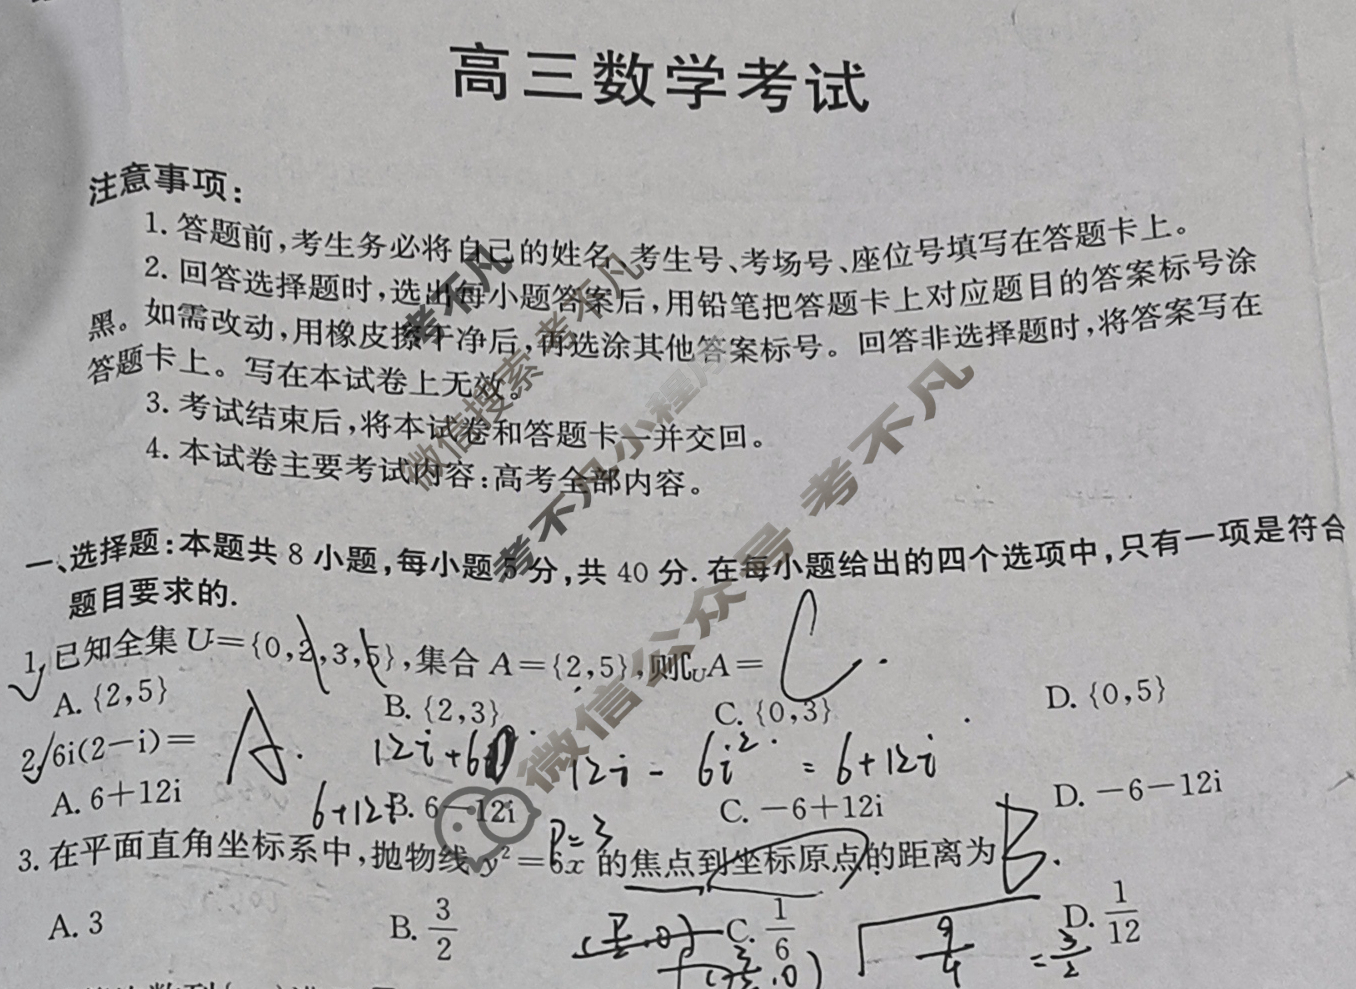 高三数学考试
注意事项:
1. 答题前,考生务必将自己的姓名、考生号、考场号、座位号填写在答题卡上。
2. 回答选择题时,选出每小题答案后,用铅笔把答题卡上对应题目的答案标号涂
黑。如需改动,用橡皮擦干净后,再选涂其他答案标号。回答非选择题时,将答案写在
答题卡上。写在本试卷上无效。
3. 考试结束后,将本试卷和答题卡一并交回。
4. 本试卷主要考试内容:高考全部内容。
考不凡
微信搜索 考不凡
考不凡小程序
微信公众号 考不凡
一、选择题:本题共 8 小题,每小题 5 分,共 40 分. 在每小题给出的四个选项中,只有一项是符合
题目要求的.
1. 已知全集 U={0,2,3,5},集合 A={2,5},则∁UA= C.
A. {2,5} B. {2,3} C. {0,3} D. {0,5}
2. 6i(2-i)= A. 12i+6 12i - 6i² = 6+12i
A. 6+12i 6+12i B. 6-12i C. -6+12i D. -6-12i
P=3
3. 在平面直角坐标系中,抛物线 y²=6x 的焦点到坐标原点的距离为 B.
A. 3 B. 3/2 C. 1/6 D. 1/12
(P/2,0) (3/2,0) √9/4 =3/2